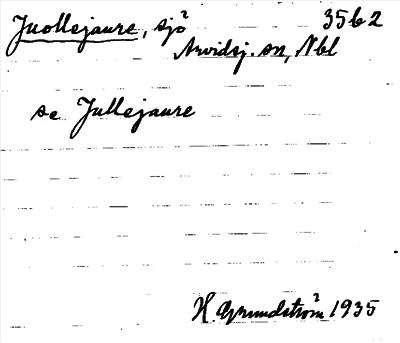 Juollejaure, sjö 35 b 2
Arvidsj. sn, Nbl
se Jullejaure
H Grundström 1935